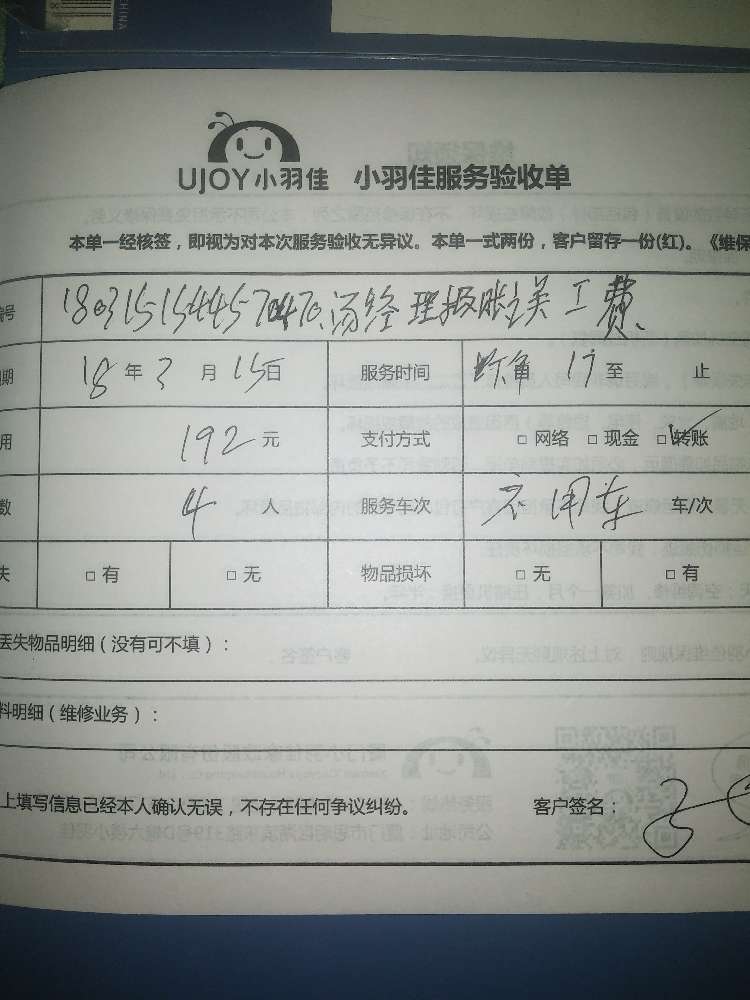 CHINA
UJOY小羽佳 小羽佳服务验收单
本单一经核签，即视为对本次服务验收无异议。本单一式两份，客户留存一份(红)。《维保
号 汤经理报账 美工费
期 18年3月15日 服务时间 17 至 止
用 192元 支付方式 □网络 □现金 □转账
数 4人 服务车次 不用车 车/次
失 □有 □无 物品损坏 □无 □有
丢失物品明细（没有可不填）：
料明细（维修业务）：
上填写信息已经本人确认无误，不存在任何争议纠纷。 客户签名：